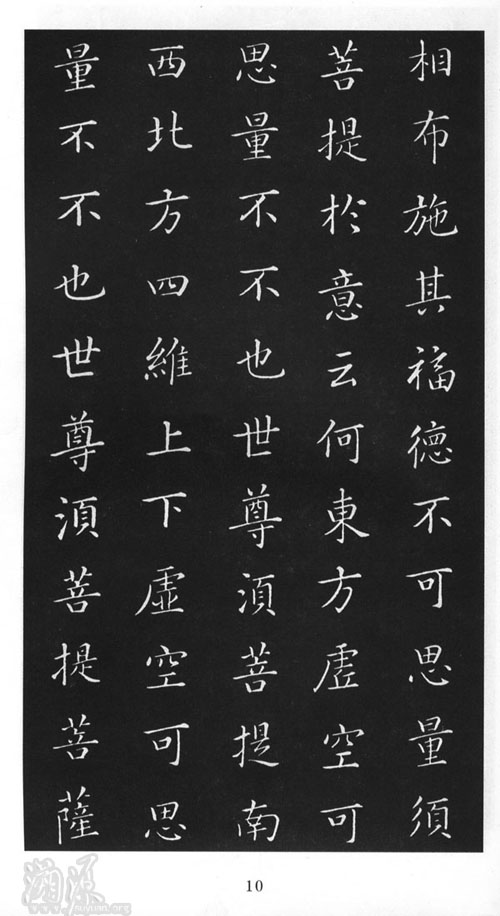 相布施其福德不可思量須
菩提於意云何東方虛空可
思量不不也世尊須菩提南
西北方四維上下虛空可思
量不不也世尊須菩提菩薩
10
溯源
www.suyuan.org